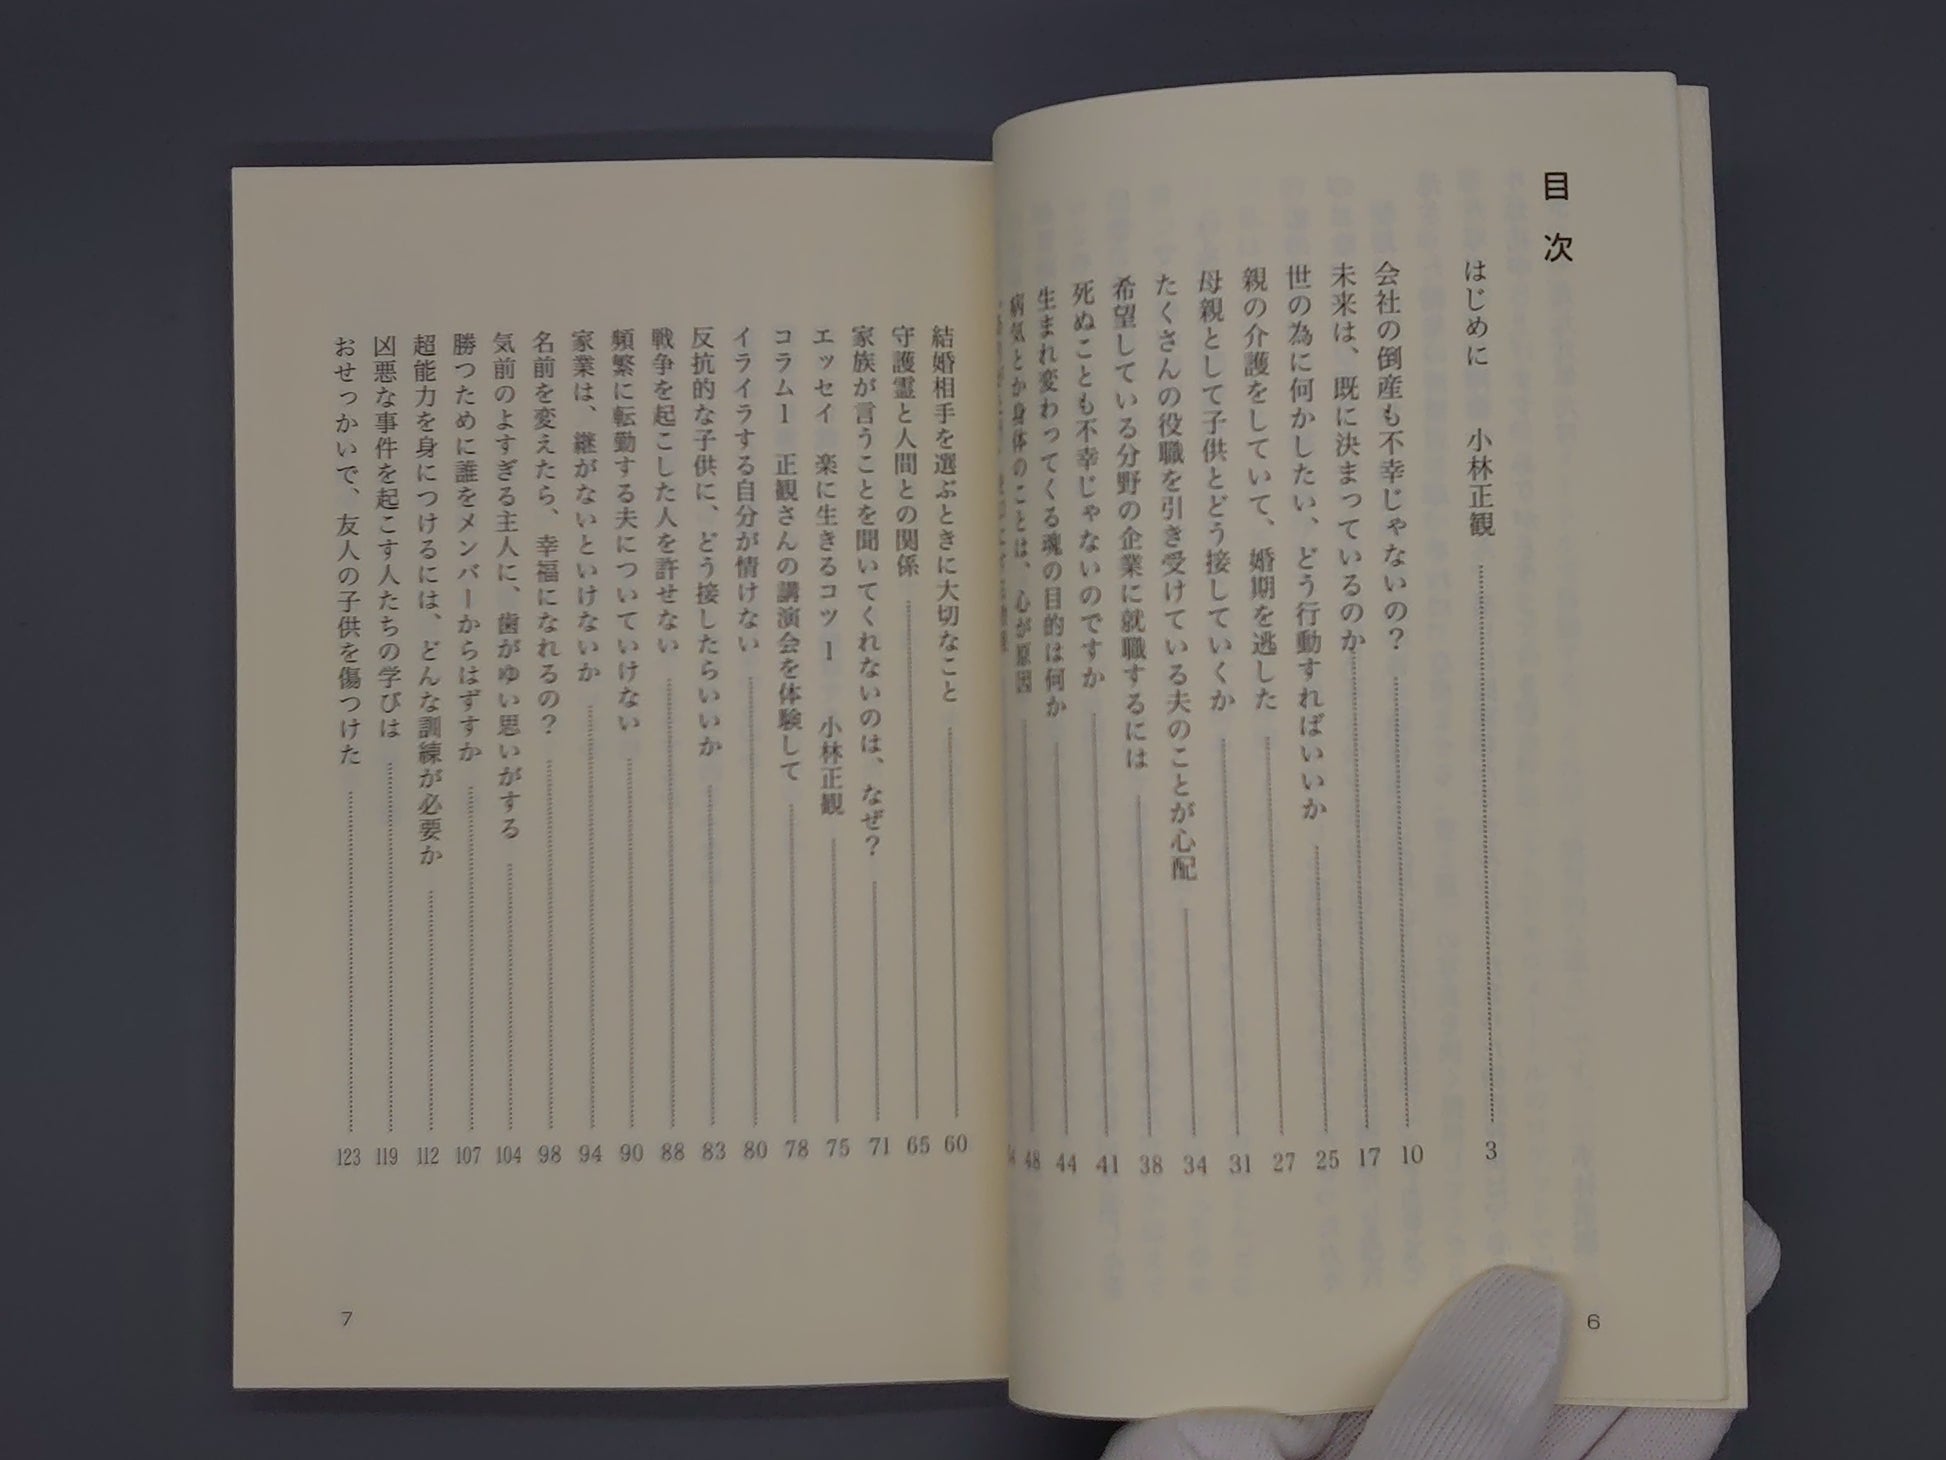 目次
はじめに　小林正観 3
会社の倒産も不幸じゃないの？ 10
未来は、既に決まっているのか 17
世の為に何かしたい、どう行動すればいいか 25
親の介護をしていて、婚期を逃した 27
母親として子供とどう接していくか 31
たくさんの役職を引き受けている夫のことが心配 34
希望している分野の企業に就職するには 38
死ぬことも不幸じゃないのですか 41
生まれ変わってくる魂の目的は何か 44
病気とか身体のことは、心が原因 48
6
結婚相手を選ぶときに大切なこと 60
守護霊と人間との関係 65
家族が言うことを聞いてくれないのは、なぜ？ 71
エッセイ　楽に生きるコツ1　小林正観 75
コラム1　正観さんの講演会を体験して 78
イライラする自分が情けない 80
反抗的な子供に、どう接したらいいか 83
戦争を起こした人を許せない 88
頻繁に転勤する夫についていけない 90
家業は、継がないといけないか 94
名前を変えたら、幸福になれるの？ 98
気前のよすぎる主人に、歯がゆい思いがする 104
勝つために誰をメンバーからはずすか 107
超能力を身につけるには、どんな訓練が必要か 112
凶悪な事件を起こす人たちの学びは 119
おせっかいで、友人の子供を傷つけた 123
7